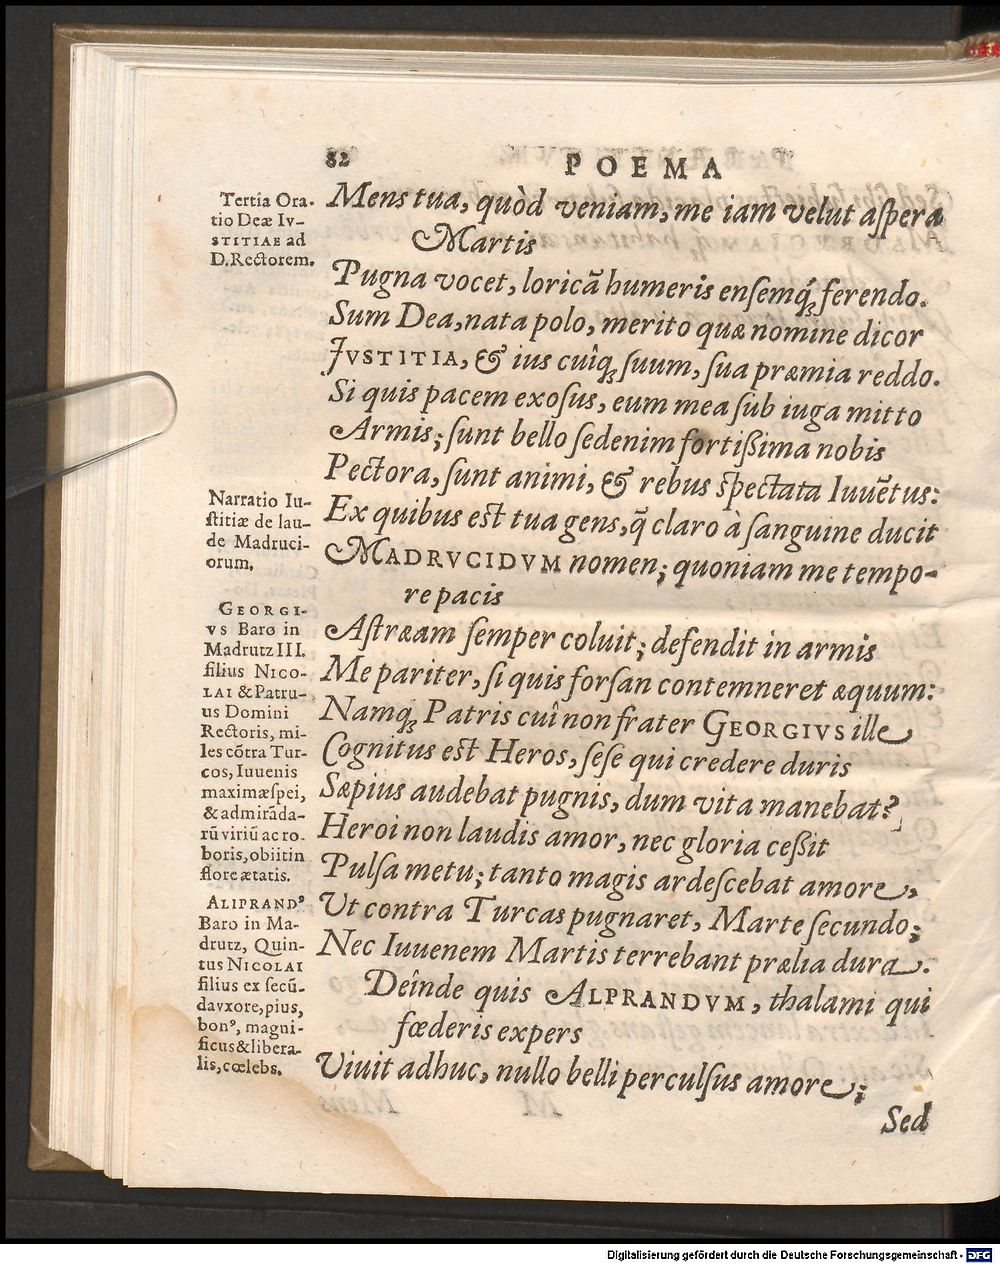 82
POEMA
Tertia Ora-
tio Deæ Iv-
STITIAE ad
D.Rectorem.
Mens tua, quòd veniam, me iam velut aſpera
Martis
Pugna vocet, loricã humeris enſemq́; ferendo.
Sum Dea, nata polo, merito quæ nomine dicor
JVSTITIA, & ius cuiq; ſuum, ſua præmia reddo.
Si quis pacem exoſus, eum mea ſub iuga mitto
Armis; ſunt bello ſedenim fortißima nobis
Pectora, ſunt animi, & rebus ſpectata Iuuẽtus:
Narratio Iu-
ſtitiæ de lau-
de Madruci-
orum.
Ex quibus eſt tua gens, q̃ claro à ſanguine ducit
MADRVCIDVM nomen; quoniam me tempo-
re pacis
GEORGI-
VS Baro in
Madrutz III.
filius NICO-
LAI & Patru-
us Domini
Rectoris, mi-
les cõtra Tur-
cos, Iuuenis
maximæ ſpei,
& admirãda-
rũ viriũ ac ro-
boris, obiit in
flore ætatis.
Aſtræam ſemper coluit; defendit in armis
Me pariter, ſi quis forſan contemneret æquum:
Namq́; Patris cui non frater GEORGIVS ille
Cognitus eſt Heros, ſeſe qui credere duris
Sæpius audebat pugnis, dum vita manebat?
Heroi non laudis amor, nec gloria ceßit
Pulſa metu; tanto magis ardeſcebat amore,
ALIPRANDꝰ
Baro in Ma-
drutz, Quin-
tus NICOLAI
filius ex ſecũ-
da vxore, pius,
bonꝰ, magni-
ficus & libera-
lis, cœlebs.
Ut contra Turcas pugnaret, Marte ſecundo;
Nec Iuuenem Martis terrebant prælia dura.
Deînde quis ALPRANDVM, thalami qui
fœderis expers
Viuit adhuc, nullo belli perculſus amore;
Sed
Digitalisierung gefördert durch die Deutsche Forschungsgemeinschaft - DFG